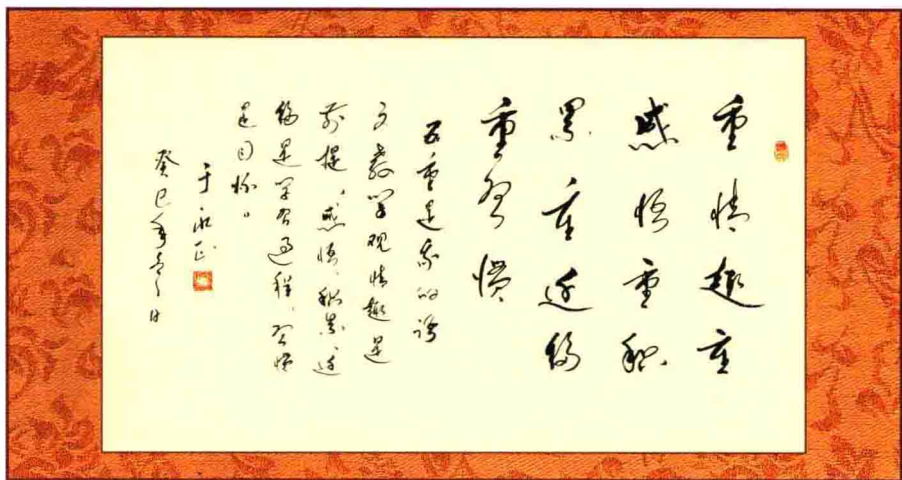 重情趣重
感悟重积
累重迁移
重习惯
五重是我的语
文教学观情趣是
前提、感悟、积累、迁
移是学习过程，习惯
是目标。
于永正
癸巳年